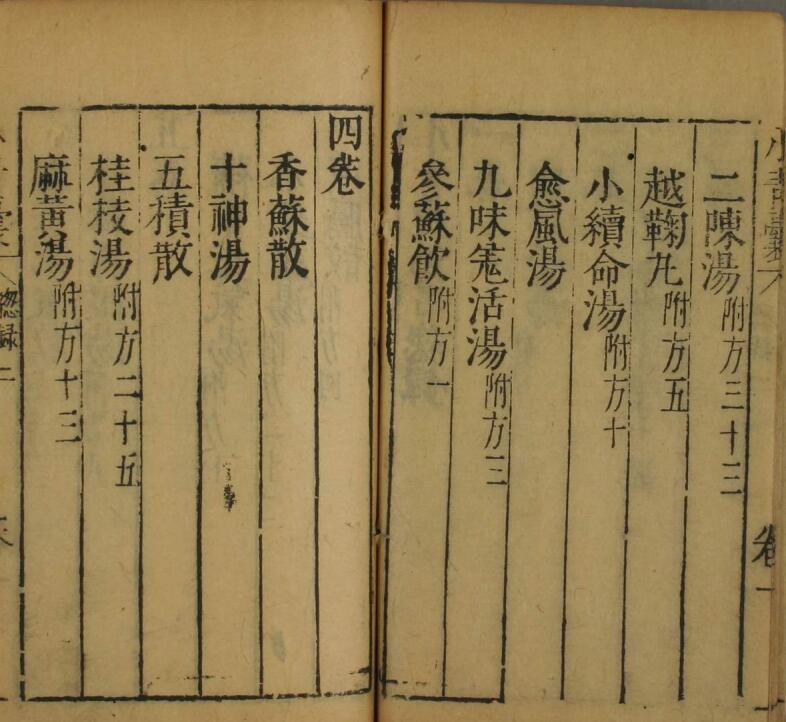 二陳湯附方三十三
越鞠丸附方五
小續命湯附方十
愈風湯
九味羌活湯附方三
參蘇飲附方一
四卷
香蘇散
十神湯
五積散
桂枝湯附方二十五
麻黃湯附方十三
總録二